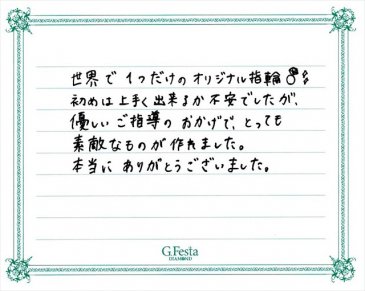 世界で1つだけのオリジナル指輪
初めは上手く出来るか不安でしたが、
優しいご指導のおかげで、とっても
素敵なものが作れました。
本当にありがとうございました。
G.Festa
DIAMOND